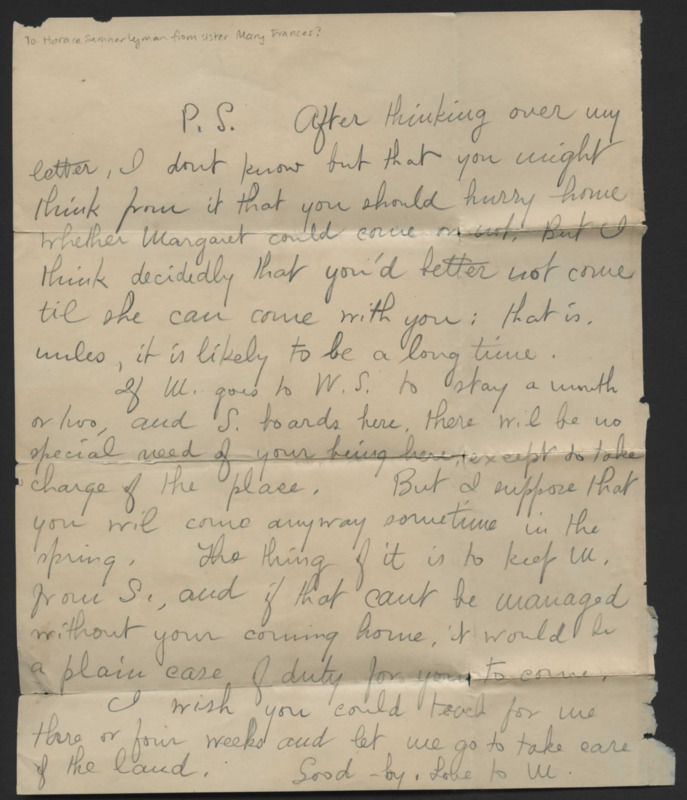 To Horace Sumner Lyman from sister Mary Frances?
P.S. After thinking over my
letter, I dont know but that you might
think from it that you should hurry home
whether Margaret could come or not. But I
think decidedly that you'd better not come
til she can come with you: that is,
unles, it is likely to be a long time.
If M. goes to W.S. to stay a month
or two, and S. boards here, there wil be no
special need of your being here, except to take
charge of the place. But I suppose that
you wil come anyway sometime in the
spring. The thing of it is to keep M.
from S., and if that cant be managed
without your coming home, it would be
a plain case of duty for you to come.
I wish you could teach for me
three or four weeks and let me go to take care
of the land. Good-by. Love to M.